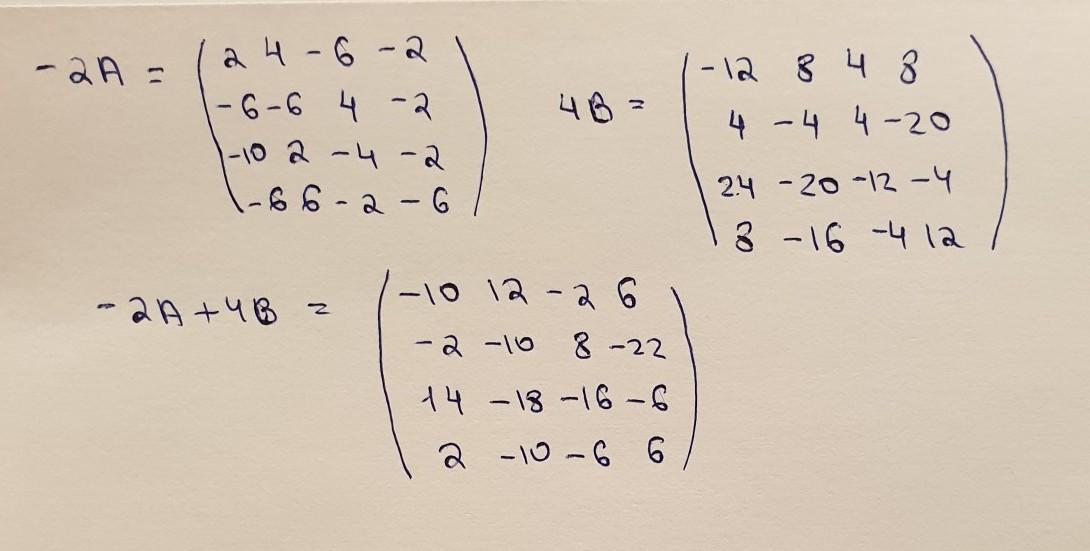 -2A = ( 2 4 -6 -2 )
( -6 -6 4 -2 )
( -10 2 -4 -2 )
( -6 6 -2 -6 )
4B = ( -12 8 4 8 )
( 4 -4 4 -20 )
( 24 -20 -12 -4 )
( 8 -16 -4 12 )
-2A+4B = ( -10 12 -2 6 )
( -2 -10 8 -22 )
( 14 -18 -16 -6 )
( 2 -10 -6 6 )